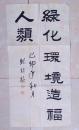 綠化環境造福
人類
己卯年秋月